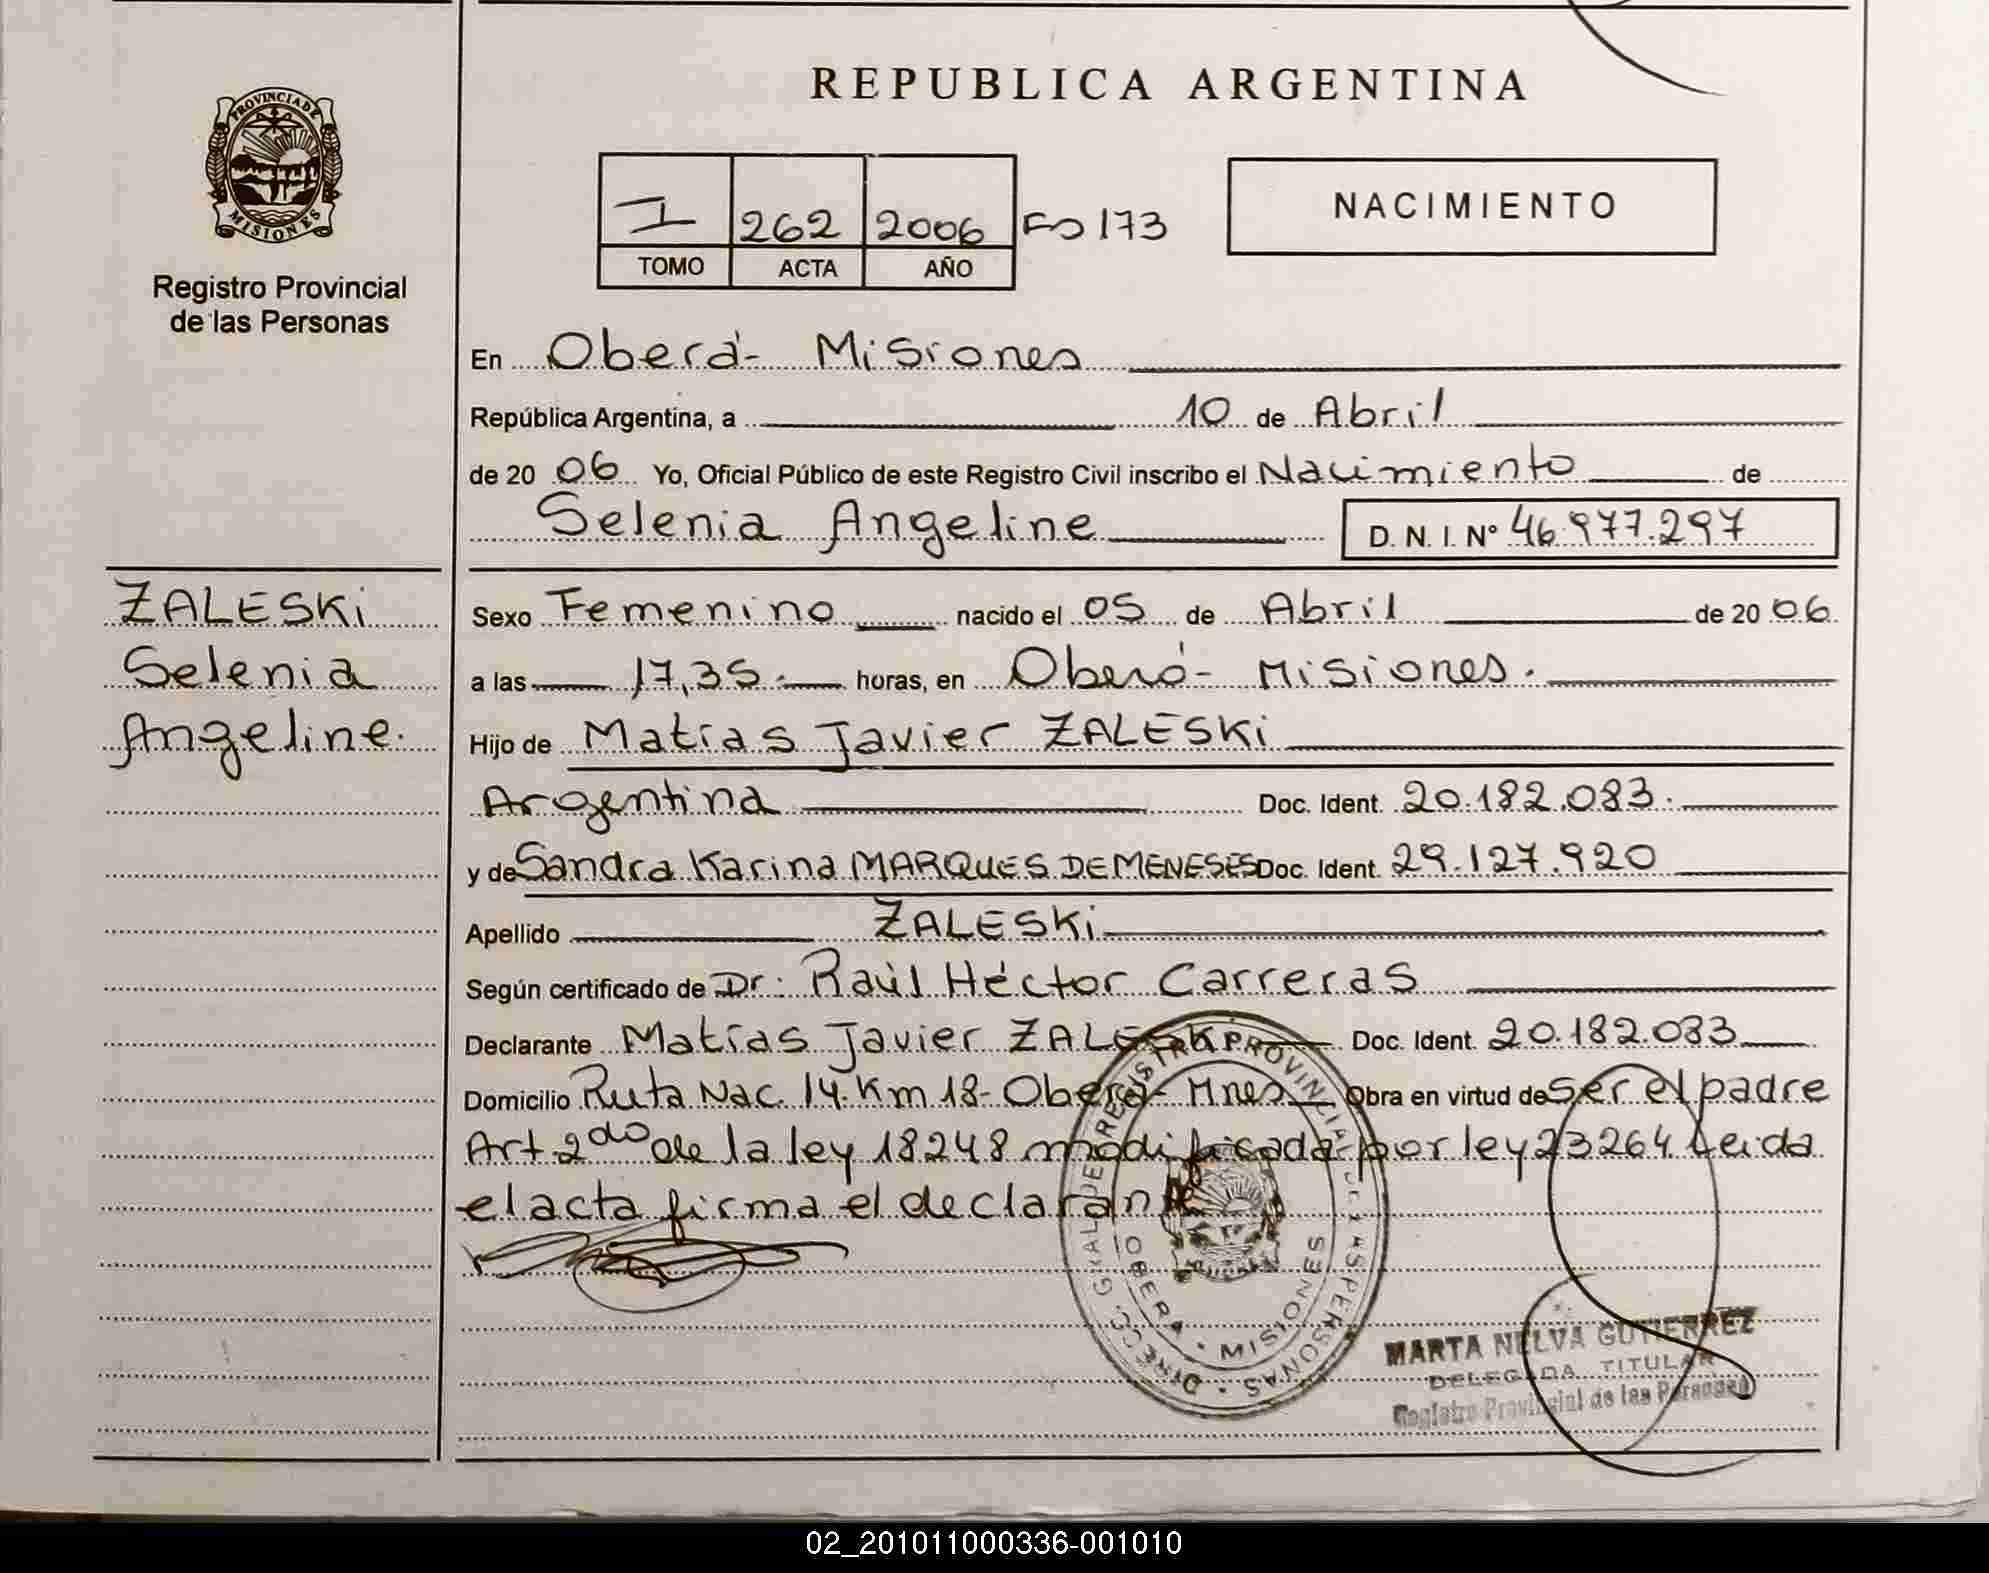 REPUBLICA ARGENTINA
PROVINCIA DE
MISIONES
Registro Provincial
de las Personas
I 262 2006 Fo 173
TOMO ACTA AÑO
NACIMIENTO
En Oberá- Misiones
República Argentina, a 10 de Abril
de 20 06 Yo, Oficial Público de este Registro Civil inscribo el Nacimiento de
Selenia Angeline D. N. I. Nº 46.977.297
ZALESKi
Selenia
Angeline.
Sexo Femenino nacido el 05 de Abril de 20 06.
a las 17,35. horas, en Oberá- Misiones.
Hijo de Matías Javier ZALESKi
Argentina Doc. Ident. 20.182.083.
y de Sandra Karina MARQUES DE MENESES Doc. Ident. 29.127.920
Apellido ZALESKi
Según certificado de Dr: Raúl Héctor Carreras
Declarante Matías Javier ZALESKi Doc. Ident. 20.182.083
Domicilio Ruta Nac. 14. Km 18- Oberá- Mnes Obra en virtud de ser el padre
Art 2do de la ley 18248 modificada por ley 23264. Leida
el acta firma el declarante
DIRECC. GRAL DE REGISTRO PROVINCIAL DE LAS PERSONAS
OBERA - MISIONES
MARTA NELVA GUTIERREZ
DELEGADA TITULAR
Registro Provincial de las Personas
02_201011000336-001010